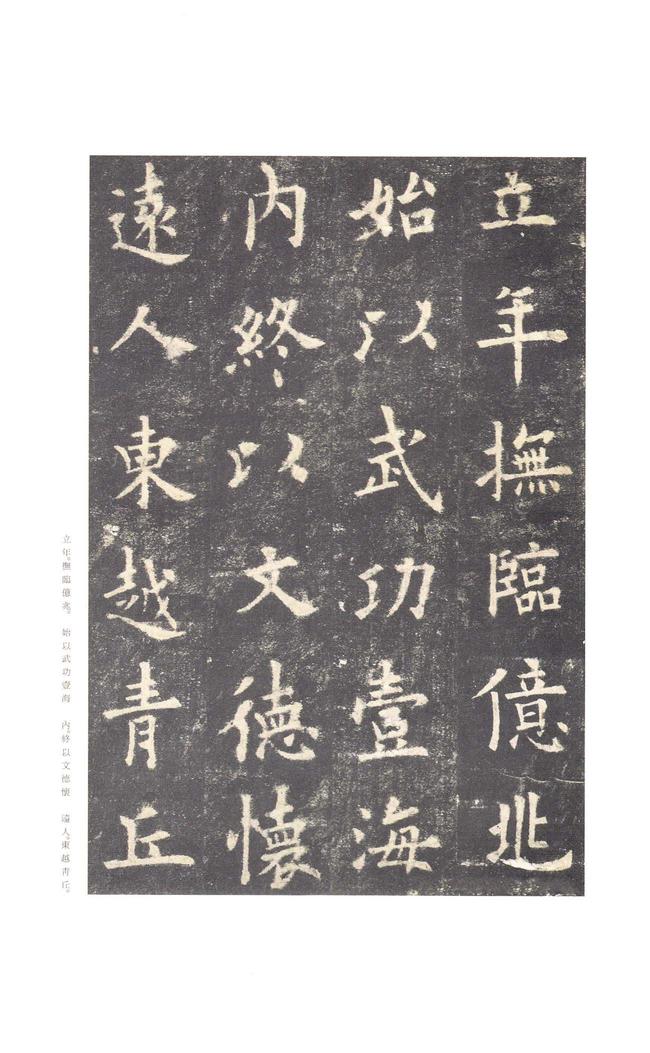 立年撫臨億兆
始以武功壹海
内終以文德懷
遠人東越青丘
立年。撫臨億兆。 始以武功壹海 内。終以文德懷 遠人。東越青丘。